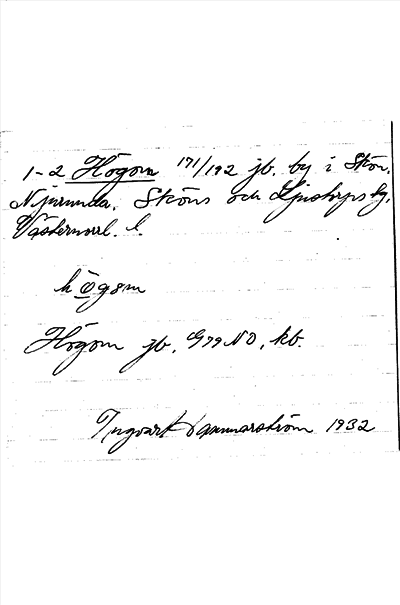 1-2 Högom 171/192 jb. by i Skön.
Njurunda, Sköns och Ljustorps tg.
Västernorrl. l.
högom
Högom jb, G79NO, kb.
Ingvart Hammarström 1932